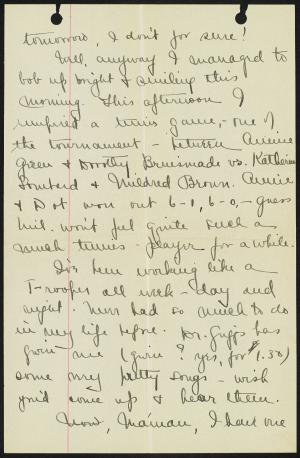 tomorrow, I don't for sure!
Well, anyway I managed to
bob up bright & smiling this
morning. This afternoon I
umpired a tennis game, - one of
the tournament - between Annie
Green & Dorothy vs. Katherine
& Mildred Brown. Annie
& Dot won out 6-1, 6-0, - guess
Mil. won't feel quite such a
much tennis-player for a while.
I've been working like a
Trooper all week - day and
night. Never had so much to do
in my life before. Dr. Griggs has
given me (given? yes, for $1.50)
some very pretty songs - wish
you'd come up & hear them.
Now, Maman, I have one